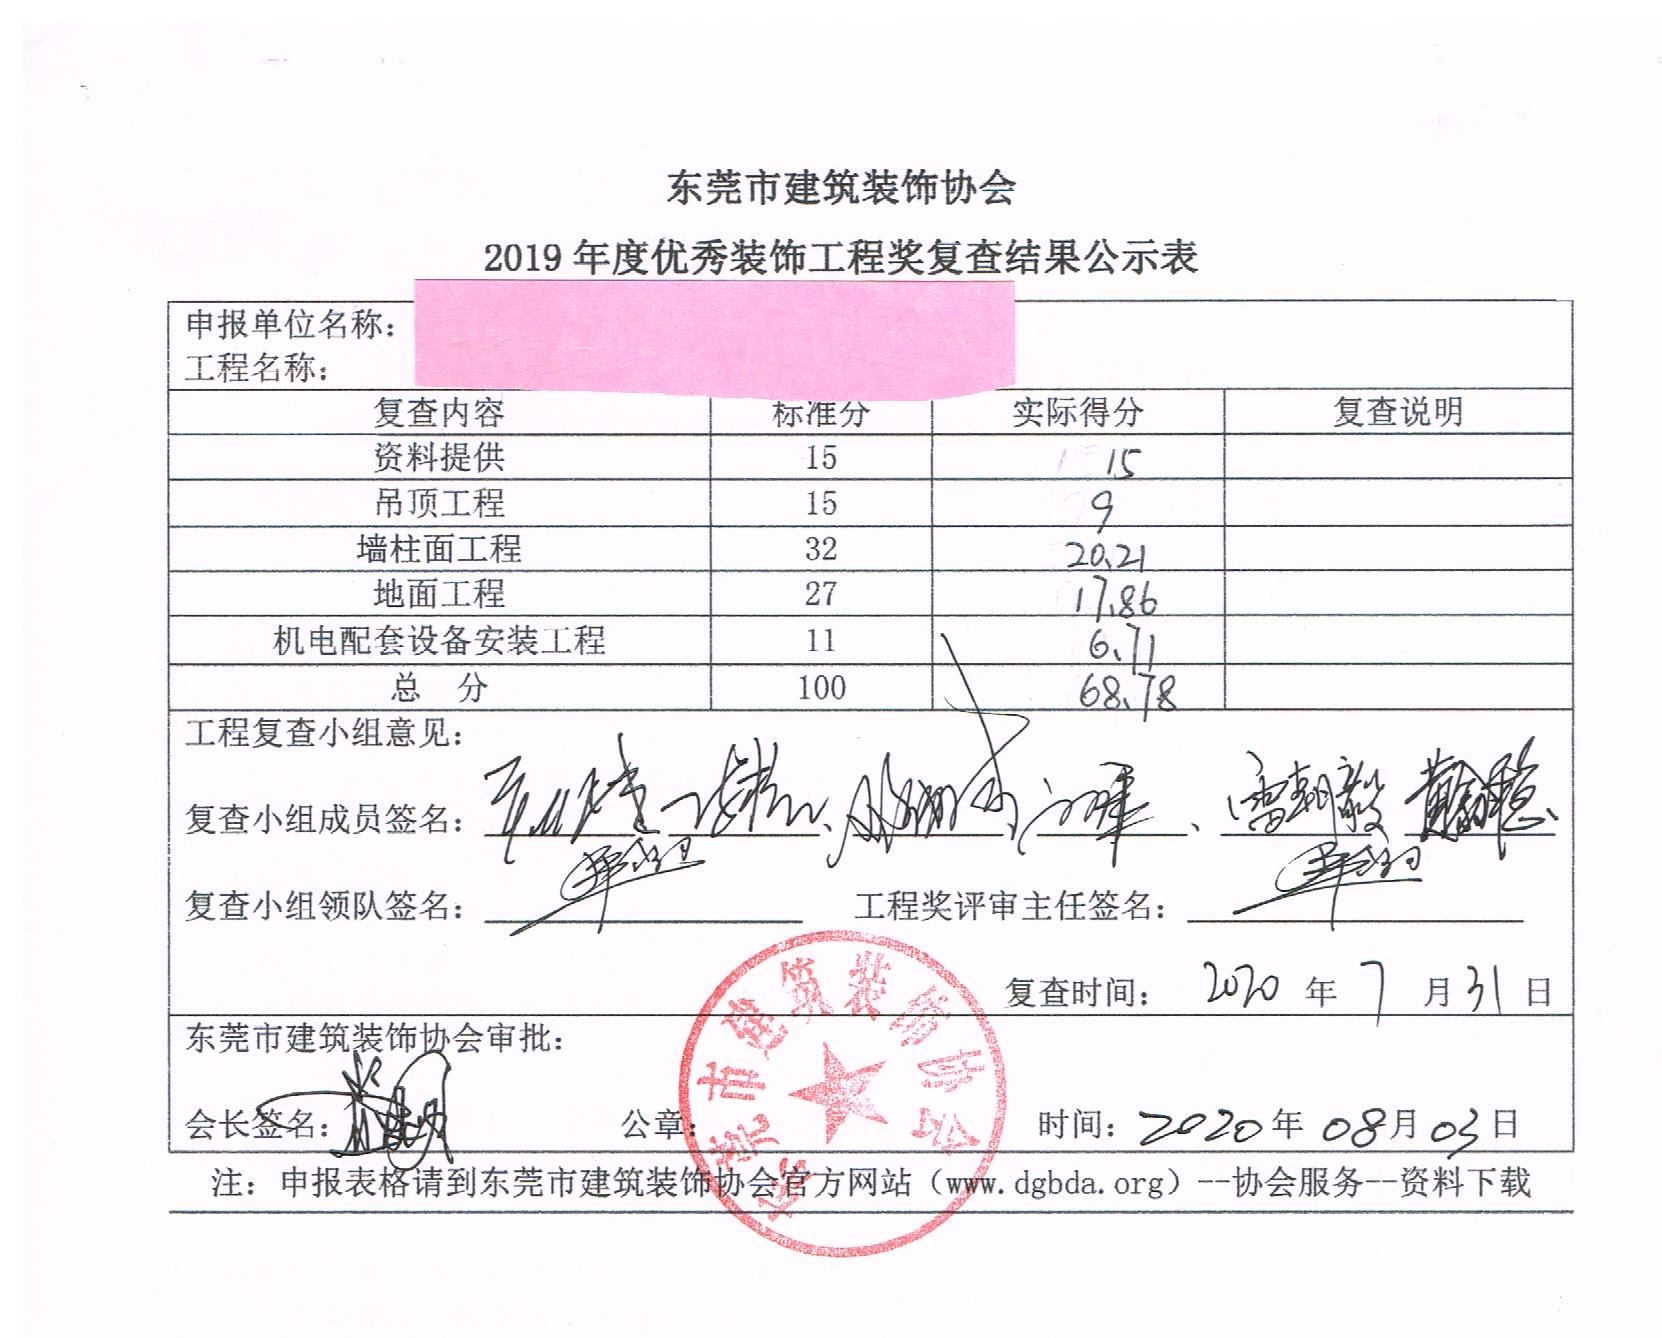 东莞市建筑装饰协会
2019 年度优秀装饰工程奖复查结果公示表
申报单位名称：
工程名称：
复查内容 标准分 实际得分 复查说明
资料提供 15 15
吊顶工程 15 9
墙柱面工程 32 20.21
地面工程 27 17.86
机电配套设备安装工程 11 6.71
总 分 100 68.78
工程复查小组意见：
复查小组成员签名：
复查小组领队签名： 工程奖评审主任签名：
复查时间： 2020 年 7 月 31 日
东莞市建筑装饰协会审批：
会长签名： 公章： 时间：2020 年 08 月 03 日
东莞市建筑装饰协会
注：申报表格请到东莞市建筑装饰协会官方网站（www.dgbda.org）--协会服务--资料下载